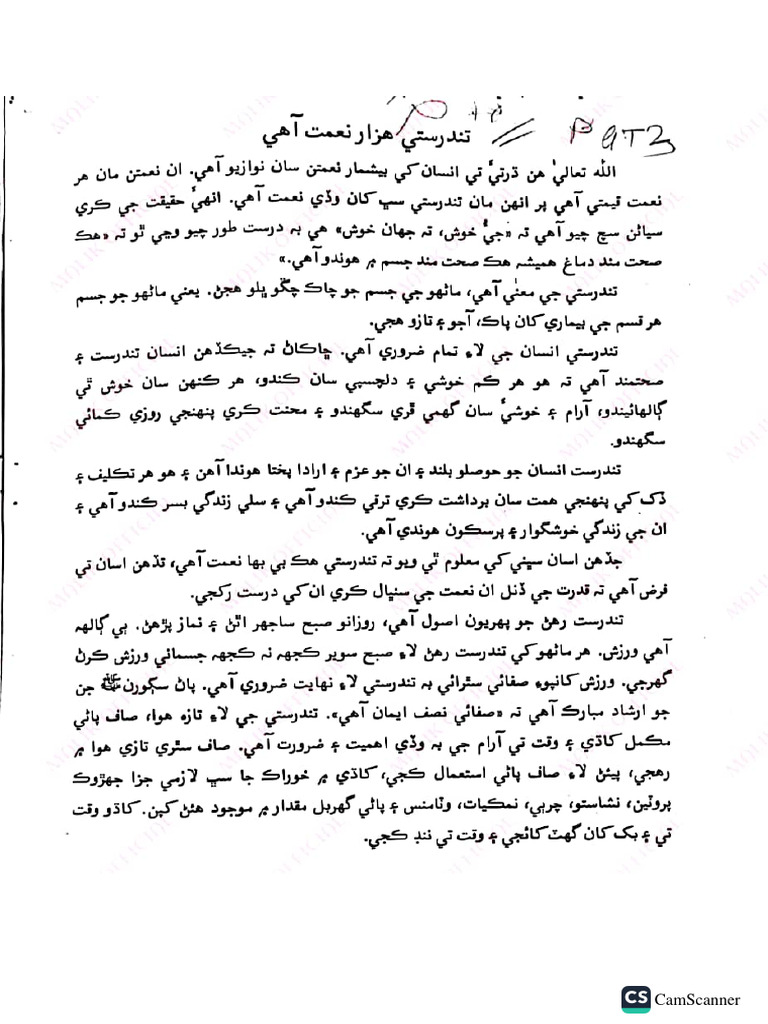 P 9T3
تندرستي هزار نعمت آهي
الله تعاليٰ هن ڌرتيءَ تي انسان کي بيشمار نعمتن سان نوازيو آهي. ان نعمتن مان هر
نعمت قيمتي آهي پر انهن مان تندرستي سڀ کان وڏي نعمت آهي. انهيءَ حقيقت جي ڪري
سياڻن سچ چيو آهي ته «جيءُ خوش، ته جهان خوش» هي به درست طور چيو وڃي ٿو ته «هڪ
صحت مند دماغ هميشه هڪ صحت مند جسم ۾ هوندو آهي.»
تندرستي جي معنيٰ آهي، ماڻهو جي جسم جو چاڪ چڱو ڀلو هجڻ. يعني ماڻهو جو جسم
هر قسم جي بيماري کان پاڪ، آجو ۽ تازو هجي.
تندرستي انسان جي لاءِ تمام ضروري آهي. ڇاڪاڻ ته جيڪڏهن انسان تندرست ۽
صحتمند آهي ته هو هر ڪم خوشي ۽ دلچسپي سان ڪندو، هر ڪنهن سان خوش ٿي
ڳالهائيندو، آرام ۽ خوشيءَ سان گهمي ڦري سگهندو ۽ محنت ڪري پنهنجي روزي ڪمائي
سگهندو.
تندرست انسان جو حوصلو بلند ۽ ان جو عزم ۽ ارادا پختا هوندا آهن ۽ هو هر تڪليف ۽
ڏک کي پنهنجي همت سان برداشت ڪري ترقي ڪندو آهي ۽ سلي زندگي بسر ڪندو آهي ۽
ان جي زندگي خوشگوار ۽ پرسڪون هوندي آهي.
جڏهن اسان سڀني کي معلوم ٿي ويو ته تندرستي هڪ بي بها نعمت آهي، تڏهن اسان تي
فرض آهي ته قدرت جي ڏنل ان نعمت جي سنڀال ڪري ان کي درست رکجي.
تندرست رهڻ جو پهريون اصول آهي، روزانو صبح ساجهر اٿڻ ۽ نماز پڙهڻ. ٻي ڳالهه
آهي ورزش. هر ماڻهو کي تندرست رهڻ لاءِ صبح سوير ڪجهه نه ڪجهه جسماني ورزش ڪرڻ
گهرجي. ورزش کانپوءِ صفائي سٿرائي به تندرستي لاءِ نهايت ضروري آهي. پاڻ سڳورن ﷺ جن
جو ارشاد مبارڪ آهي ته «صفائي نصف ايمان آهي». تندرستي جي لاءِ تازه هوا، صاف پاڻي
مڪمل کاڌي ۽ وقت تي آرام جي به وڏي اهميت ۽ ضرورت آهي. صاف سٿري تازي هوا ۾
رهجي، پيئڻ لاءِ صاف پاڻي استعمال ڪجي، کاڌي ۾ خوراڪ جا سڀ لازمي جزا جهڙوڪ
پروٽين، نشاستو، چرٻي، نمڪيات، وٽامنس ۽ پاڻي گهربل مقدار ۾ موجود هئڻ کپن. کاڌو وقت
تي ۽ بک کان گهٽ کائجي ۽ وقت تي ننڊ ڪجي.
CS CamScanner